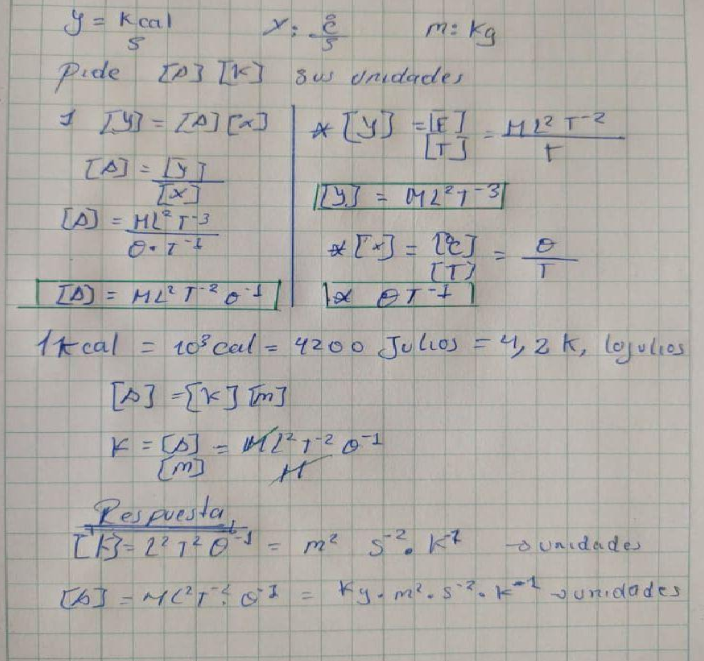 y = Kcal/s    x: °c/s    m: Kg
pide [A] [K] sus unidades
1 [y] = [A] [x]
[A] = [y]/[x]
[A] = ML² T⁻³/θ· T⁻¹
[A] = ML² T⁻² θ⁻¹
* [y] = [E]/[T] = ML² T⁻²/T
[y] = ML² T⁻³
* [x] = [°c]/[T] = θ/T
α θT⁻¹
1 Kcal = 10³ cal = 4200 Julios = 4,2 K, lojulios
[A] = [K] [m]
K = [A]/[m] = ML² T⁻² θ⁻¹/M
Respuesta
[K] = L² T² θ⁻¹ = m² s⁻². K⁻¹ → unidades
[A] = ML² T⁻² θ⁻¹ = Kg. m². s⁻². K⁻¹ → unidades